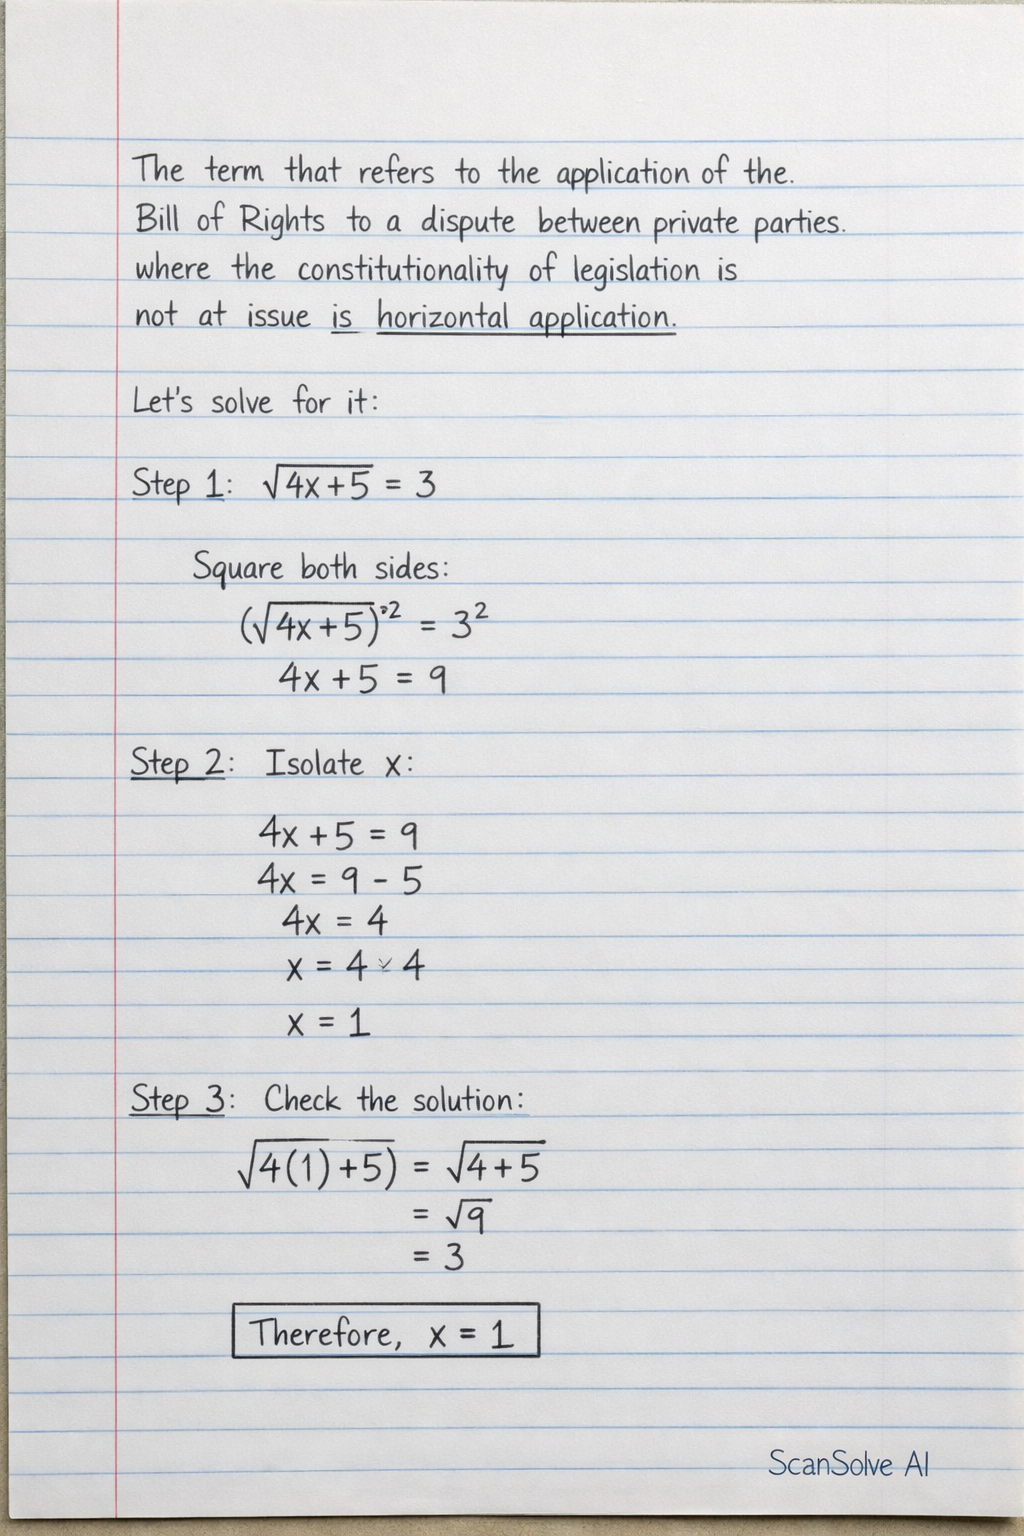 The term that refers to the application of the.
Bill of Rights to a dispute between private parties.
where the constitutionality of legislation is
not at issue is horizontal application.
Let's solve for it:
Step 1: √4x+5 = 3
Square both sides:
(√4x+5)² = 3²
4x + 5 = 9
Step 2: Isolate x:
4x + 5 = 9
4x = 9 - 5
4x = 4
x = 4 4
x = 1
Step 3: Check the solution:
√4(1)+5) = √4+5
= √9
= 3
Therefore, x = 1
ScanSolve AI